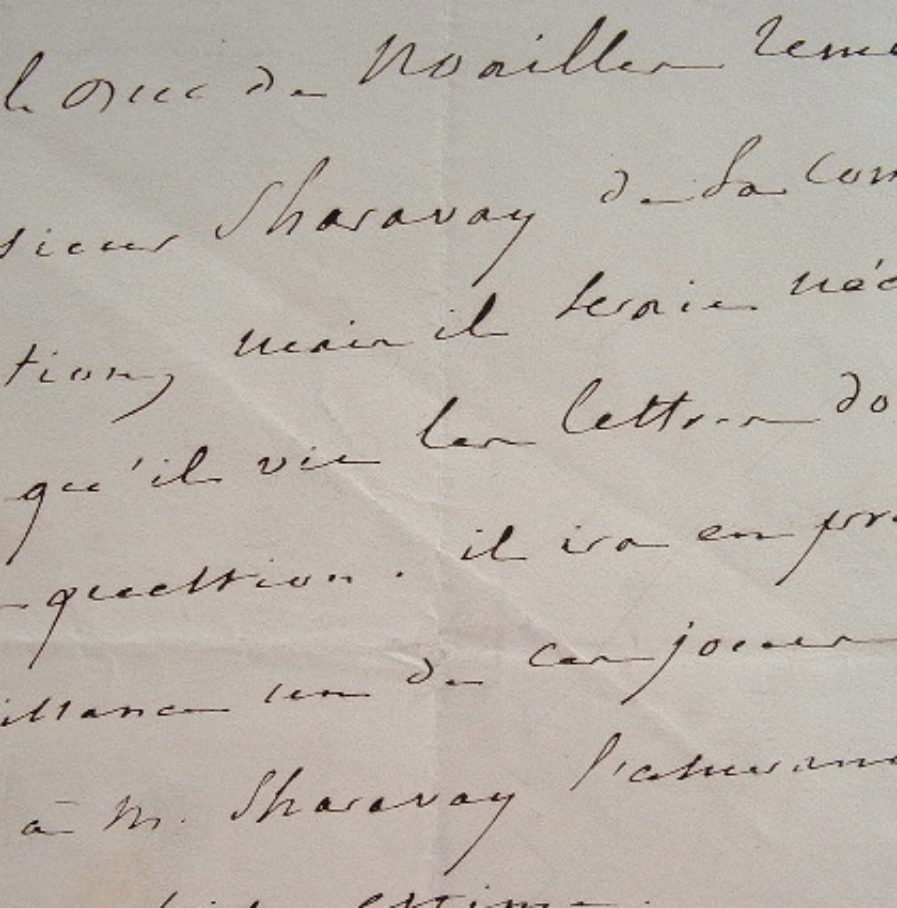 le duc de Noailles reme
sieur Sharavay de sa com
tion, mais il seroit néc
qu'il vit les lettres do
question. il ira en pre
issance un de ces jours
à M. Sharavay l'assuranc
estime.